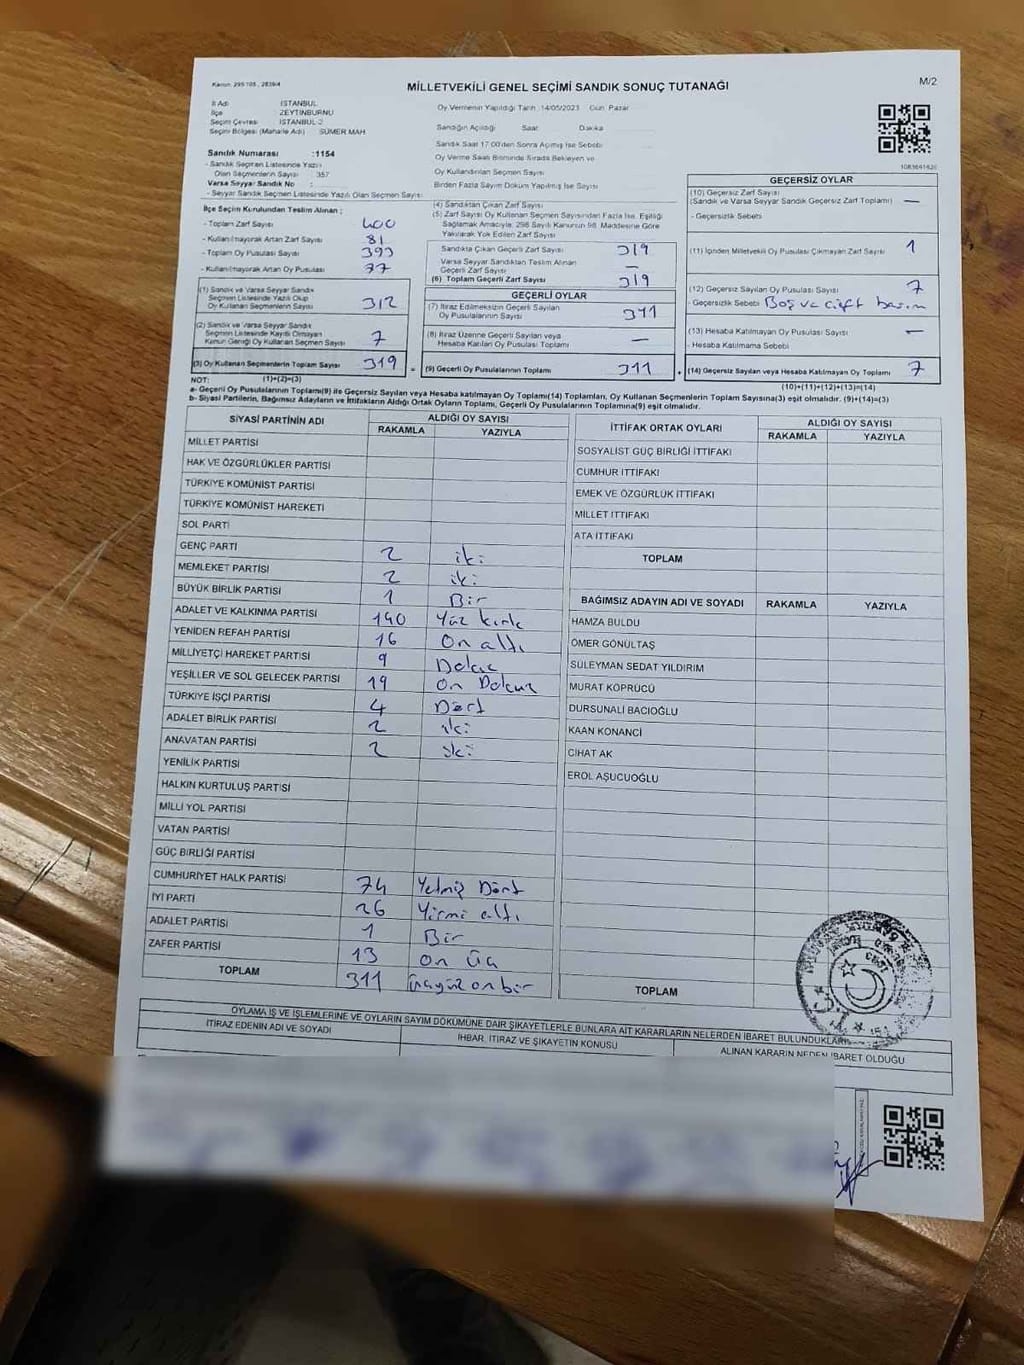 Kanun: 295/105 , 2839/4
MİLLETVEKİLİ GENEL SEÇİMİ SANDIK SONUÇ TUTANAĞI
M/2
İl Adı : İSTANBUL
İlçe : ZEYTİNBURNU
Seçim Çevresi : İSTANBUL-2
Seçim Bölgesi (Mahalle Adı) : SÜMER MAH.
Sandık Numarası :1154
- Sandık Seçmen Listesinde Yazılı
Olan Seçmenlerin Sayısı : 357
Varsa Seyyar Sandık No :
- Seyyar Sandık Seçmen Listesinde Yazılı Olan Seçmen Sayısı:
Oy Vermenin Yapıldığı Tarih :14/05/2023 Gün: Pazar
Sandığın Açıldığı Saat Dakika
Sandık Saat 17:00'den Sonra Açılmış İse Sebebi
Oy Verme Saati Bitiminde Sırada Bekleyen ve
Oy Kullandırılan Seçmen Sayısı
Birden Fazla Sayım Döküm Yapılmış İse Sayısı
İlçe Seçim Kurulundan Teslim Alınan ;
- Toplam Zarf Sayısı 400
- Kullanılmayarak Artan Zarf Sayısı 81
- Toplam Oy Pusulası Sayısı 393
- Kullanılmayarak Artan Oy Pusulası 77
(1) Sandık ve Varsa Seyyar Sandık
Seçmen Listesinde Yazılı Olup
Oy Kullanan Seçmenlerin Sayısı 312
(2) Sandık ve Varsa Seyyar Sandık
Seçmen Listesinde Kayıtlı Olmayan
Kanun Gereği Oy Kullanan Seçmen Sayısı 7
(3) Oy Kullanan Seçmenlerin Toplam Sayısı 319
(1)+(2)=(3)
(4) Sandıktan Çıkan Zarf Sayısı
(5) Zarf Sayısı Oy Kullanan Seçmen Sayısından Fazla İse, Eşitliği
Sağlamak Amacıyla, 298 Sayılı Kanunun 98. Maddesine Göre
Yakılarak Yok Edilen Zarf Sayısı
Sandıkta Çıkan Geçerli Zarf Sayısı 319
Varsa Seyyar Sandıktan Teslim Alınan
Geçerli Zarf Sayısı —
(6) Toplam Geçerli Zarf Sayısı 319
GEÇERLİ OYLAR
(7) İtiraz Edilmeksizin Geçerli Sayılan
Oy Pusulalarının Sayısı 311
(8) İtiraz Üzerine Geçerli Sayılan veya
Hesaba Katılan Oy Pusulası Toplamı —
= (9) Geçerli Oy Pusulalarının Toplamı 311
1083691620
GEÇERSİZ OYLAR
(10) Geçersiz Zarf Sayısı
(Sandık ve Varsa Seyyar Sandık Geçersiz Zarf Toplamı) —
- Geçersizlik Sebebi
(11) İçinden Milletvekili Oy Pusulası Çıkmayan Zarf Sayısı 1
(12) Geçersiz Sayılan Oy Pusulası Sayısı 7
- Geçersizlik Sebebi Boş ve çift basım
(13) Hesaba Katılmayan Oy Pusulası Sayısı —
- Hesaba Katılmama Sebebi
+ (14) Geçersiz Sayılan veya Hesaba Katılmayan Oy Toplamı 7
(10)+(11)+(12)+(13)=(14)
NOT:
a- Geçerli Oy Pusulalarının Toplamı(9) ile Geçersiz Sayılan veya Hesaba katılmayan Oy Toplamı(14) Toplamları, Oy Kullanan Seçmenlerin Toplam Sayısına(3) eşit olmalıdır. (9)+(14)=(3)
b- Siyasi Partilerin, Bağımsız Adayların ve İttifakların Aldığı Ortak Oyların Toplamı, Geçerli Oy Pusulalarının Toplamına(9) eşit olmalıdır.
SİYASİ PARTİNİN ADI ALDIĞI OY SAYISI
RAKAMLA YAZIYLA
MİLLET PARTİSİ
HAK VE ÖZGÜRLÜKLER PARTİSİ
TÜRKİYE KOMÜNİST PARTİSİ
TÜRKİYE KOMÜNİST HAREKETİ
SOL PARTİ
GENÇ PARTİ 2 iki
MEMLEKET PARTİSİ 2 iki
BÜYÜK BİRLİK PARTİSİ 1 Bir
ADALET VE KALKINMA PARTİSİ 140 Yüz kırk
YENİDEN REFAH PARTİSİ 16 On altı
MİLLİYETÇİ HAREKET PARTİSİ 9 Dokuz
YEŞİLLER VE SOL GELECEK PARTİSİ 19 On Dokuz
TÜRKİYE İŞÇİ PARTİSİ 4 Dört
ADALET BİRLİK PARTİSİ 2 iki
ANAVATAN PARTİSİ 2 iki
YENİLİK PARTİSİ
HALKIN KURTULUŞ PARTİSİ
MİLLİ YOL PARTİSİ
VATAN PARTİSİ
GÜÇ BİRLİĞİ PARTİSİ
CUMHURİYET HALK PARTİSİ 74 Yetmiş Dört
İYİ PARTİ 26 Yirmi altı
ADALET PARTİSİ 1 Bir
ZAFER PARTİSİ 13 on üç
TOPLAM 311 üçyüz on bir
İTTİFAK ORTAK OYLARI ALDIĞI OY SAYISI
RAKAMLA YAZIYLA
SOSYALİST GÜÇ BİRLİĞİ İTTİFAKI
CUMHUR İTTİFAKI
EMEK VE ÖZGÜRLÜK İTTİFAKI
MİLLET İTTİFAKI
ATA İTTİFAKI
TOPLAM
BAĞIMSIZ ADAYIN ADI VE SOYADI RAKAMLA YAZIYLA
HAMZA BULDU
ÖMER GÖNÜLTAŞ
SÜLEYMAN SEDAT YILDIRIM
MURAT KÖPRÜCÜ
DURSUNALİ BACIOĞLU
KAAN KONANCİ
CİHAT AK
EROL AŞUCUOĞLU
TOPLAM
OYLAMA İŞ VE İŞLEMLERİNE VE OYLARIN SAYIM DÖKÜMÜNE DAİR ŞİKAYETLERLE BUNLARA AİT KARARLARIN NELERDEN İBARET BULUNDUKLARI
İTİRAZ EDENİN ADI VE SOYADI İHBAR, İTİRAZ VE ŞİKAYETİN KONUSU ALINAN KARARIN NEDEN İBARET OLDUĞU